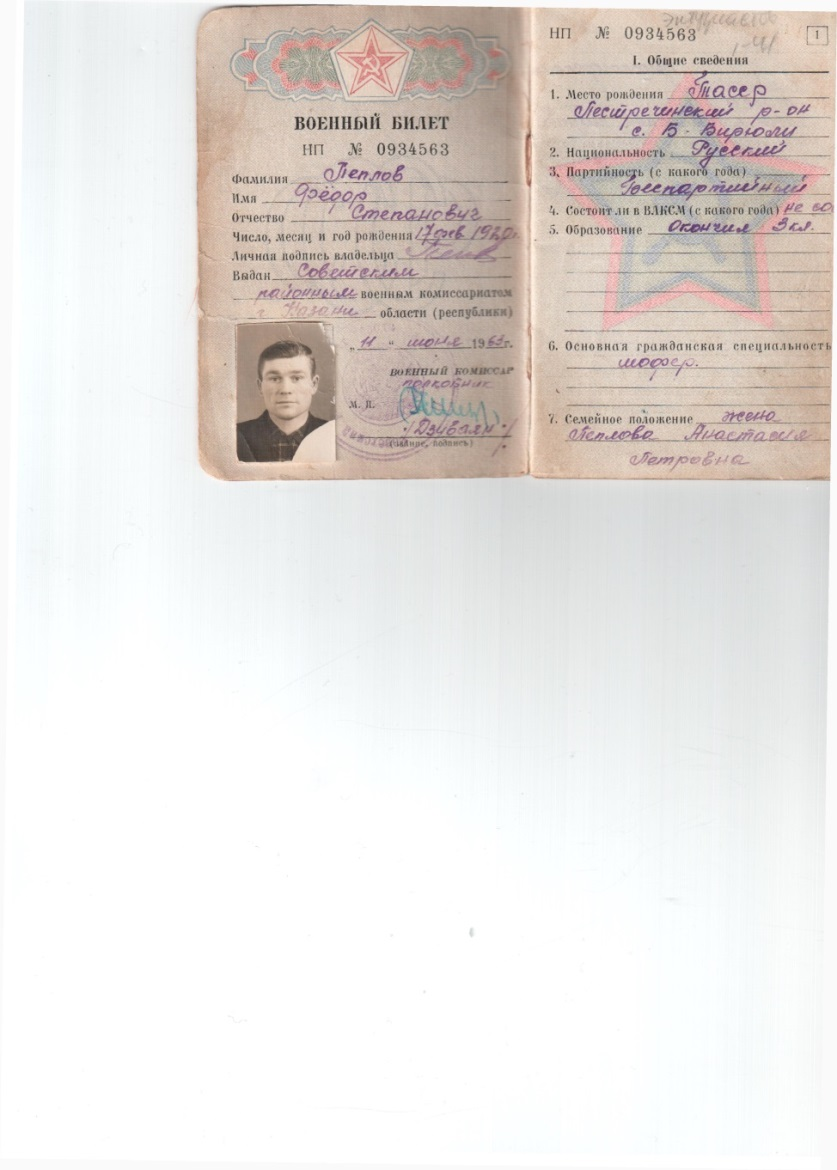 ВОЕННЫЙ БИЛЕТ
НП № 0934563
Фамилия Теплов
Имя Фёдор
Отчество Степанович
Число, месяц и год рождения 17 фев 1920г.
Личная подпись владельца
Выдан Советским
районным военным комиссариатом
г Казани области (республики)
„ 11 " июня 1963г.
ВОЕННЫЙ КОМИССАР
полковник
М. П.
(звание, подпись)
НП № 0934563
1
I. Общие сведения
1. Место рождения Тасср
Пестречинский р-он
с. Б-Бирюли
2. Национальность Русский
3. Партийность (с какого года)
Беспартийный
4. Состоит ли в ВЛКСМ (с какого года) не со
5. Образование Окончил 3 кл.
6. Основная гражданская специальность
шофер.
7. Семейное положение жена
Теплова Анастасия
Петровна